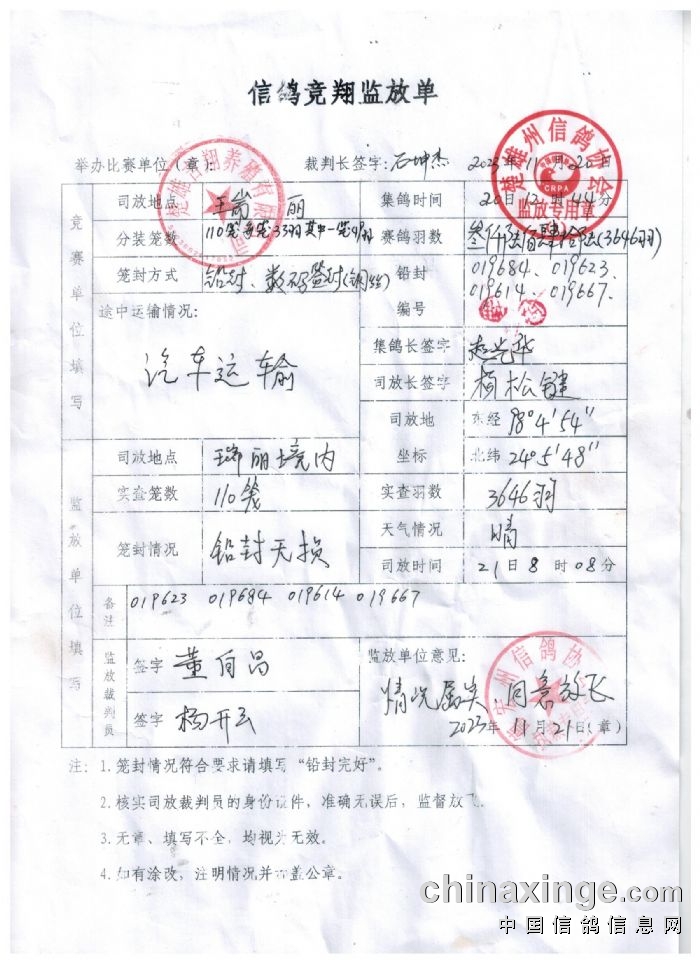 信鸽竞翔监放单
举办比赛单位(章): 裁判长签字: 石坤杰 2023年11月20日
楚雄州信鸽协会
CRPA
监放专用章
竞赛单位填写
司放地点 瑞丽 集鸽时间 20日12时44分
分装笼数 110笼 每笼33羽 其中一笼49羽 赛鸽羽数 (3646羽)
笼封方式 铅封、数码签封(钢丝) 铅封编号 019684、019623、
019614、019667.
途中运输情况:
汽车运输
集鸽长签字 赵光华
司放长签字 杨松键
司放地坐标 东经 98°4'54"
北纬 24°5'48"
监放单位填写
司放地点 瑞丽境内
实查笼数 110笼 实查羽数 3646羽
笼封情况 铅封无损 天气情况 晴
司放时间 21日8时08分
备注 019623 019684 019614 019667
监放裁判员
签字
签字 杨开云
监放单位意见:
情况属实 同意放飞
2023年11月21日(章)
注: 1.笼封情况符合要求请填写“铅封完好”。
2.核实司放裁判员的身份证件,准确无误后,监督放飞。
3.无章、填写不全,均视为无效。
4.如有涂改,注明情况并加盖公章。
chinaxinge.com
中国信鸽信息网